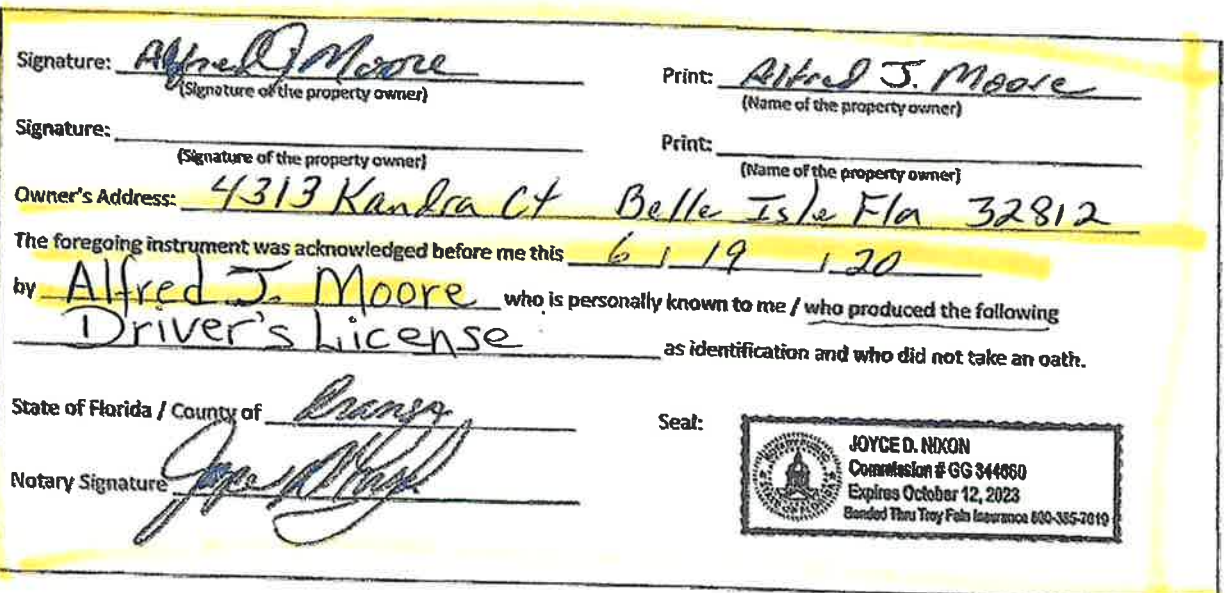 Signature: Alfred J Moore Print: Alfred J. Moore
(Signature of the property owner) (Name of the property owner)
Signature: Print:
(Signature of the property owner) (Name of the property owner)
Owner's Address: 4313 Kandra Ct Belle Isle Fla 32812
The foregoing instrument was acknowledged before me this 6 / 19 / 20
by Alfred J. Moore who is personally known to me / who produced the following
Driver's License as identification and who did not take an oath.
State of Florida / County of Orange Seal:
Notary Signature
JOYCE D. NIXON
Commission # GG 344660
Expires October 12, 2023
Bonded Thru Troy Fain Insurance 800-385-7019